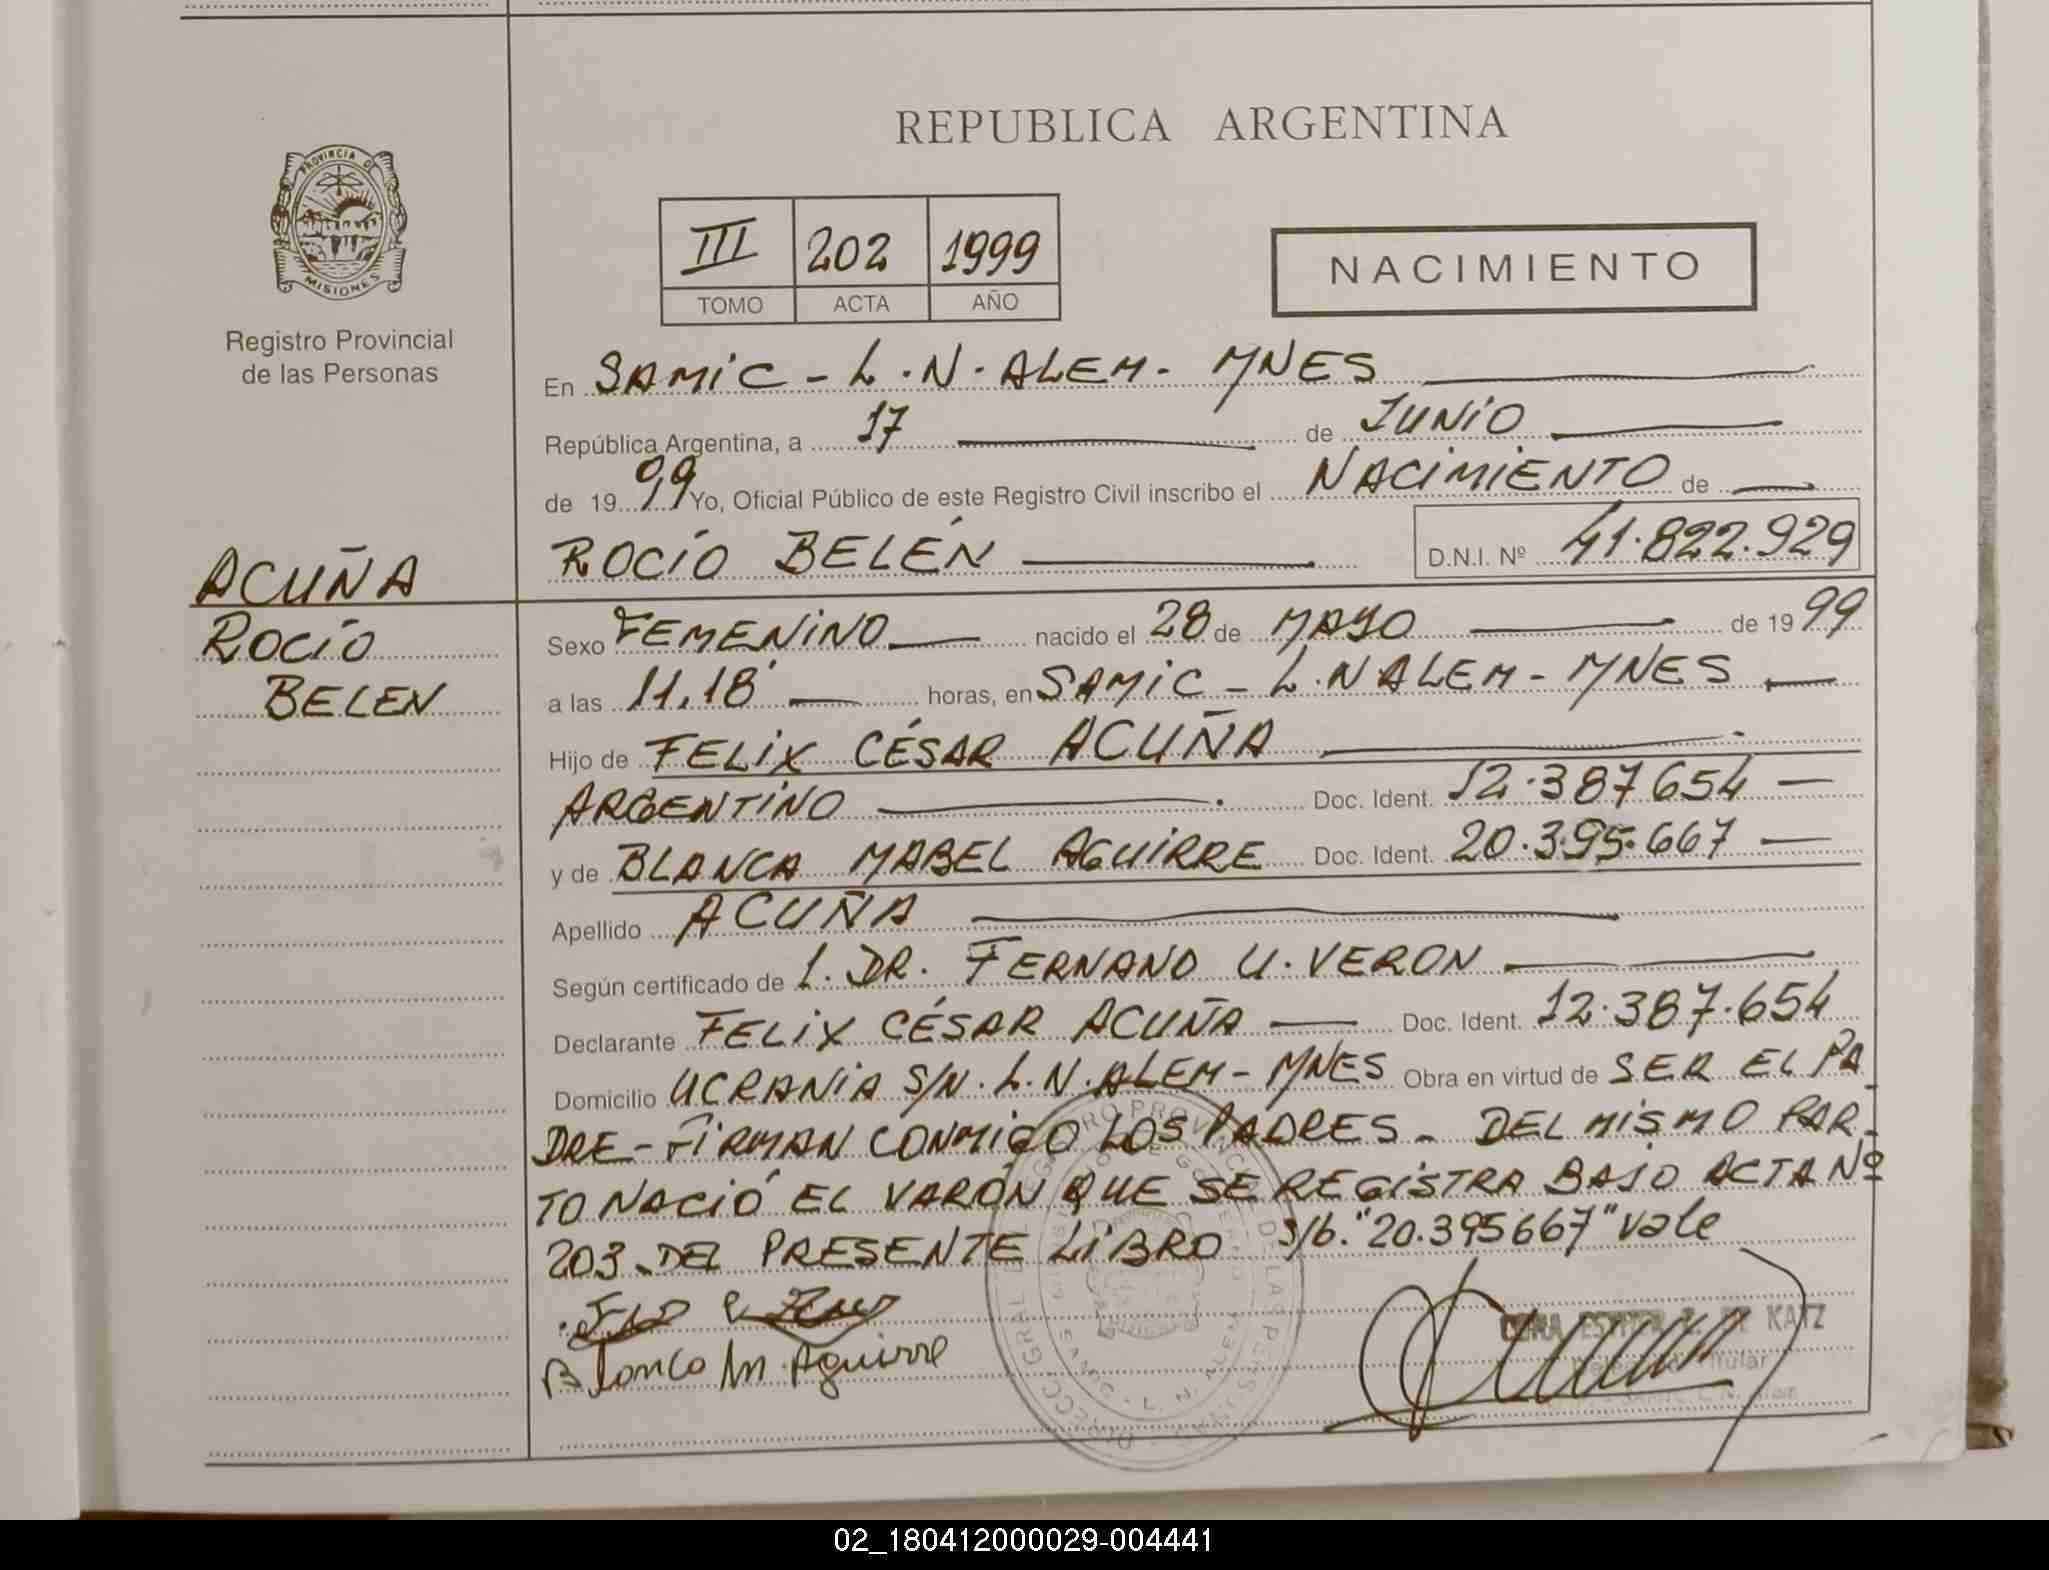 REPUBLICA ARGENTINA
PROVINCIA DE
MISIONES
Registro Provincial
de las Personas
III 202 1999
TOMO ACTA AÑO
NACIMIENTO
En SAMIC - L.N. ALEM - MNES
República Argentina, a 17 de JUNIO
de 1999 Yo, Oficial Público de este Registro Civil inscribo el NACIMIENTO de
ROCÍO BELÉN D.N.I. Nº 41.822.929
ACUÑA
ROCÍO
BELEN
Sexo FEMENINO nacido el 28 de MAYO de 1999
a las 11,18 horas, en SAMIC - L.N ALEM - MNES
Hijo de FELIX CÉSAR ACUÑA
ARGENTINO Doc. Ident. 12.387654
y de BLANCA MABEL AGUIRRE Doc. Ident. 20.395.667
Apellido ACUÑA
Según certificado de 1. DR. FERNANDO U. VERON
Declarante FELIX CÉSAR ACUÑA Doc. Ident. 12.387.654
Domicilio UCRANIA S/N. L.N. ALEM - MNES Obra en virtud de SER EL PA-
DRE - FIRMAN CONMIGO LOS PADRES - DEL MISMO PAR-
TO NACIÓ EL VARÓN QUE SE REGISTRA BAJO ACTA Nº
203 - DEL PRESENTE LIBRO s/b. "20.395667" vale
Blanca M. Aguirre
DE KATZ
Titular
02_180412000029-004441